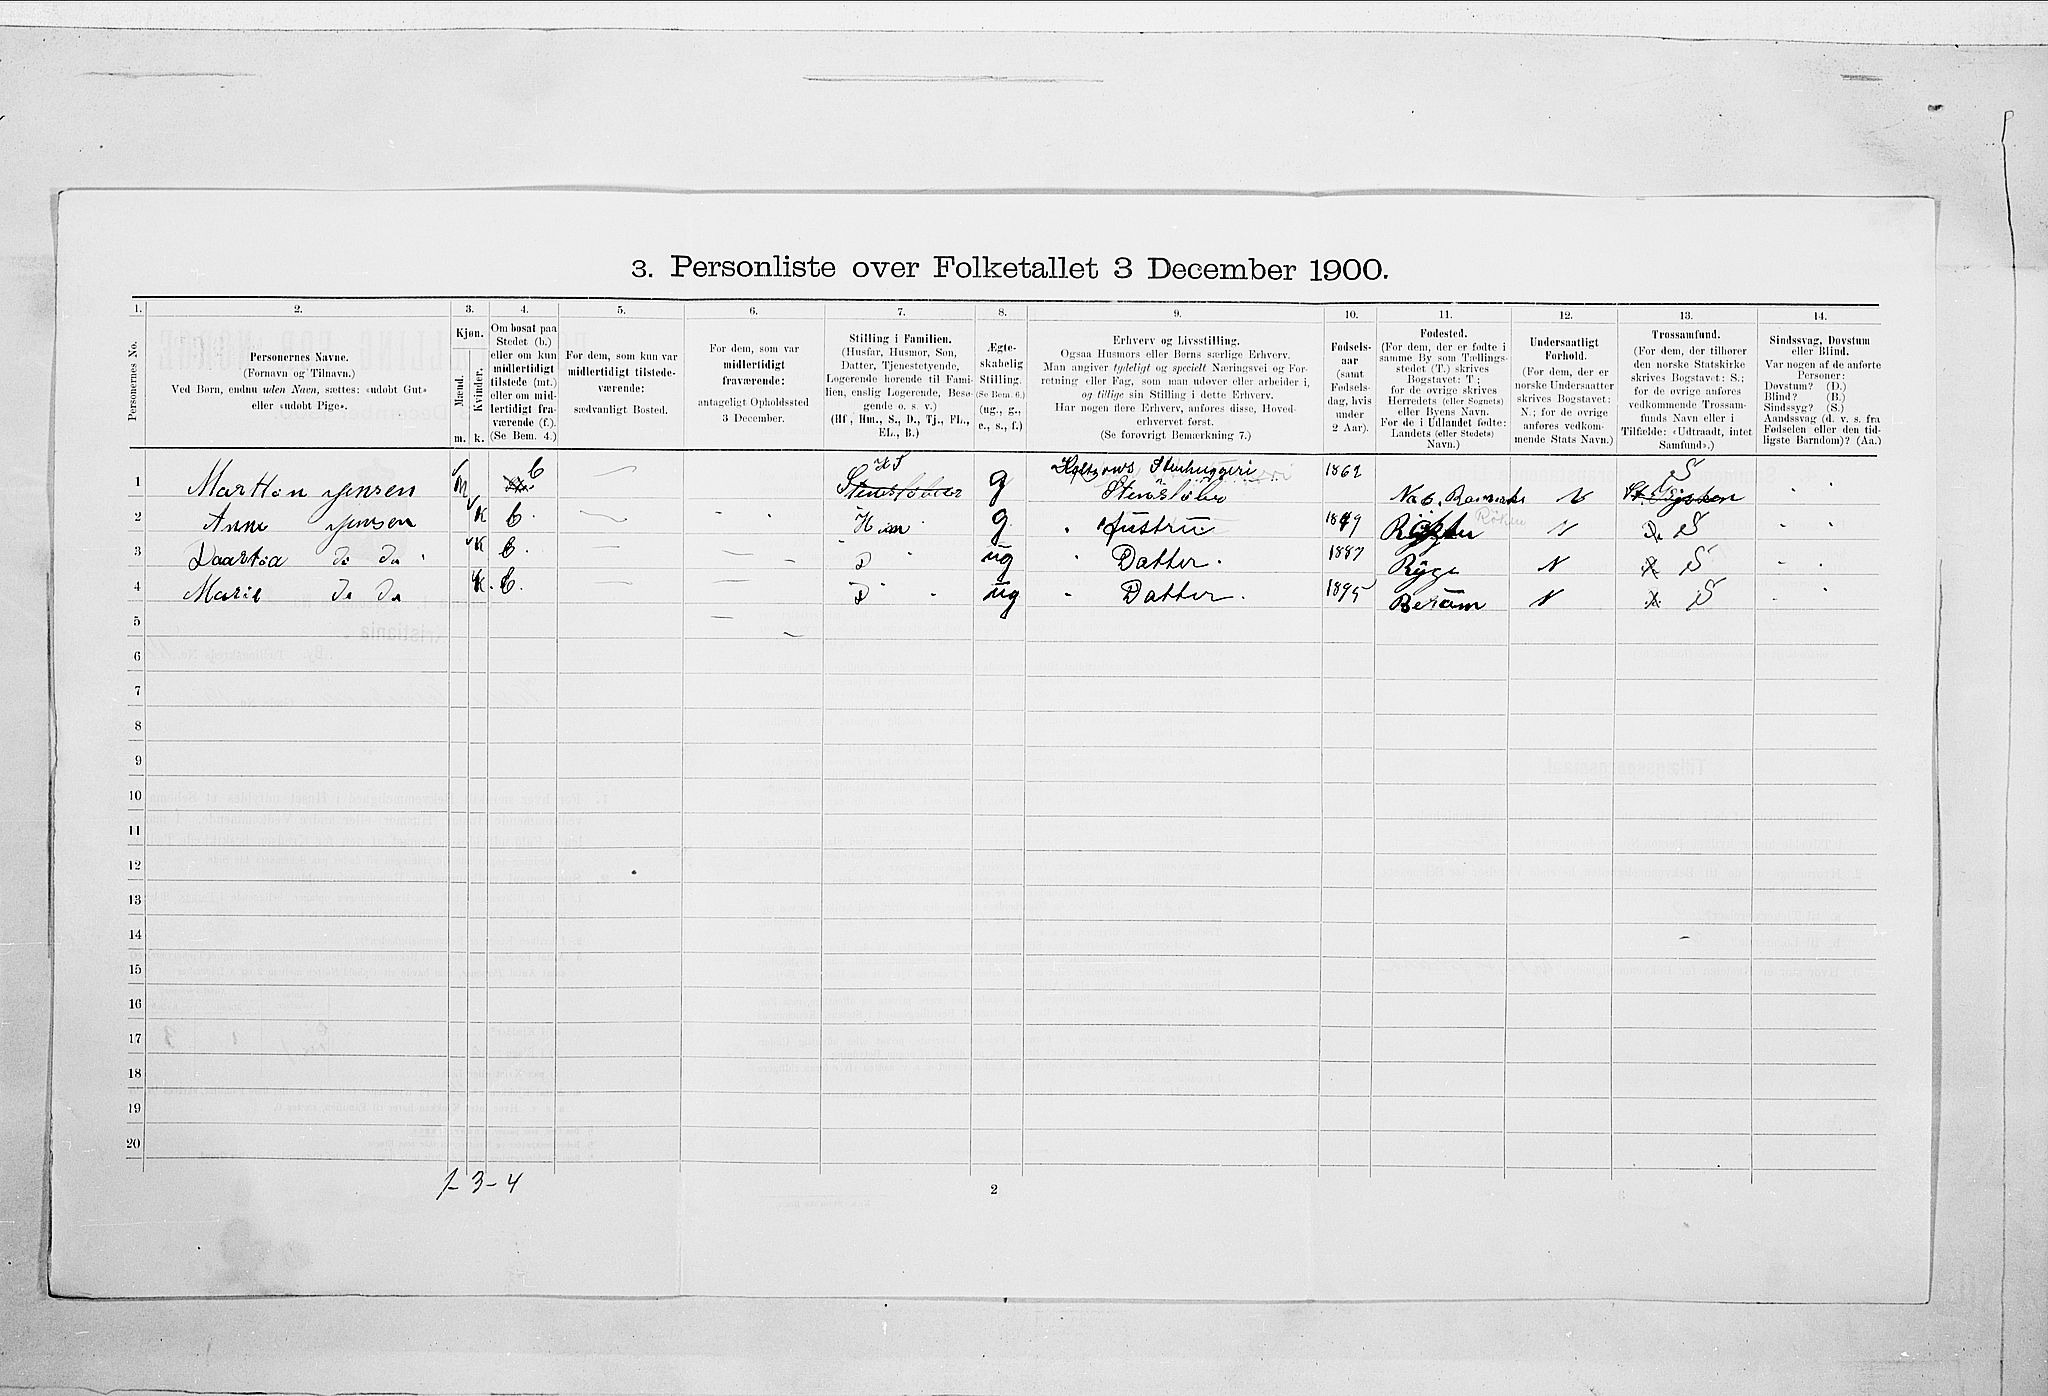 3. Personliste over Folketallet 3 December 1900.
1. 2. 3. 4. 5. 6. 7. 8. 9. 10. 11. 12. 13. 14.
Personernes No.
Personernes Navne.
(Fornavn og Tilnavn.)
Ved Børn, endnu uden Navn, sættes: «udøbt Gut»
eller «udøbt Pige».
Kjøn.
Mænd.
Kvinder.
m. k.
Om bosat paa
Stedet (b.)
eller om kun
midlertidigt
tilstede (mt.)
eller om mid-
lertidigt fra-
værende (f.).
(Se Bem. 4.)
For dem, som kun var
midlertidigt tilstede-
værende:
sædvanligt Bosted.
For dem, som var
midlertidigt
fraværende:
antageligt Opholdssted
3 December.
Stilling i Familien.
(Husfar, Husmor, Søn,
Datter, Tjenestetyende,
Logerende hørende til Fami-
lien, enslig Logerende, Besø-
gende o. s. v.)
(Hf , Hm., S., D., Tj., FL.,
EL., B.)
Ægte-
skabelig
Stilling.
(Se Bem. 6.)
(ug., g.,
e., s., f.)
Erhverv og Livsstilling.
Ogsaa Husmors eller Børns særlige Erhverv.
Man angiver tydeligt og specielt Næringsvei og For-
retning eller Fag, som man udøver eller arbeider i,
og tillige sin Stilling i dette Erhverv.
Har nogen flere Erhverv, anføres disse, Hoved-
erhvervet først.
(Se forøvrigt Bemærkning 7.)
Fødsels-
aar
(samt
Fødsels-
dag, hvis
under
2 Aar).
Fødested.
(For dem, der er fødte i
samme By som Tællings-
stedet (T.) skrives
Bogstavet: T ;
for de øvrige skrives
Herredets (eller Sognets)
eller Byens Navn.
For de i Udlandet fødte:
Landets (eller Stedets)
Navn.)
Undersaatligt
Forhold.
(For dem, der er
norske Undersaatter
skrives Bogstavet:
N.; for de øvrige
anføres vedkom-
mende Stats Navn.)
Trossamfund.
(For dem, der tilhører
den norske Statskirke
skrives Bogstavet: S.;
for de øvrige anføres
vedkommende Trossam-
funds Navn eller i
Tilfælde: «Udtraadt, intet
Samfund».)
Sindssvag, Døvstum
eller Blind.
Var nogen af de anførte
Personer:
Døvstum? (D.)
Blind? (B.)
Sindssyg? (S.)
Aandssvag (d. v. s. fra
Fødselen eller den tid-
ligste Barndom)? (Aa.)
1 Marthon Jensen m b Hf g Stenhuggeri 1862 N S
2 Anne Jensen k b. Hm g. Hustru Røken N Do S
3 do do k b. D ug Datter. 1887 Ryge N S
4 Marie do do k. b. D ug Datter. 1895 Berum N S
5
6
7
8
9
10
11
12
13
14
15
16
17
18
19
20
1-3-4
2